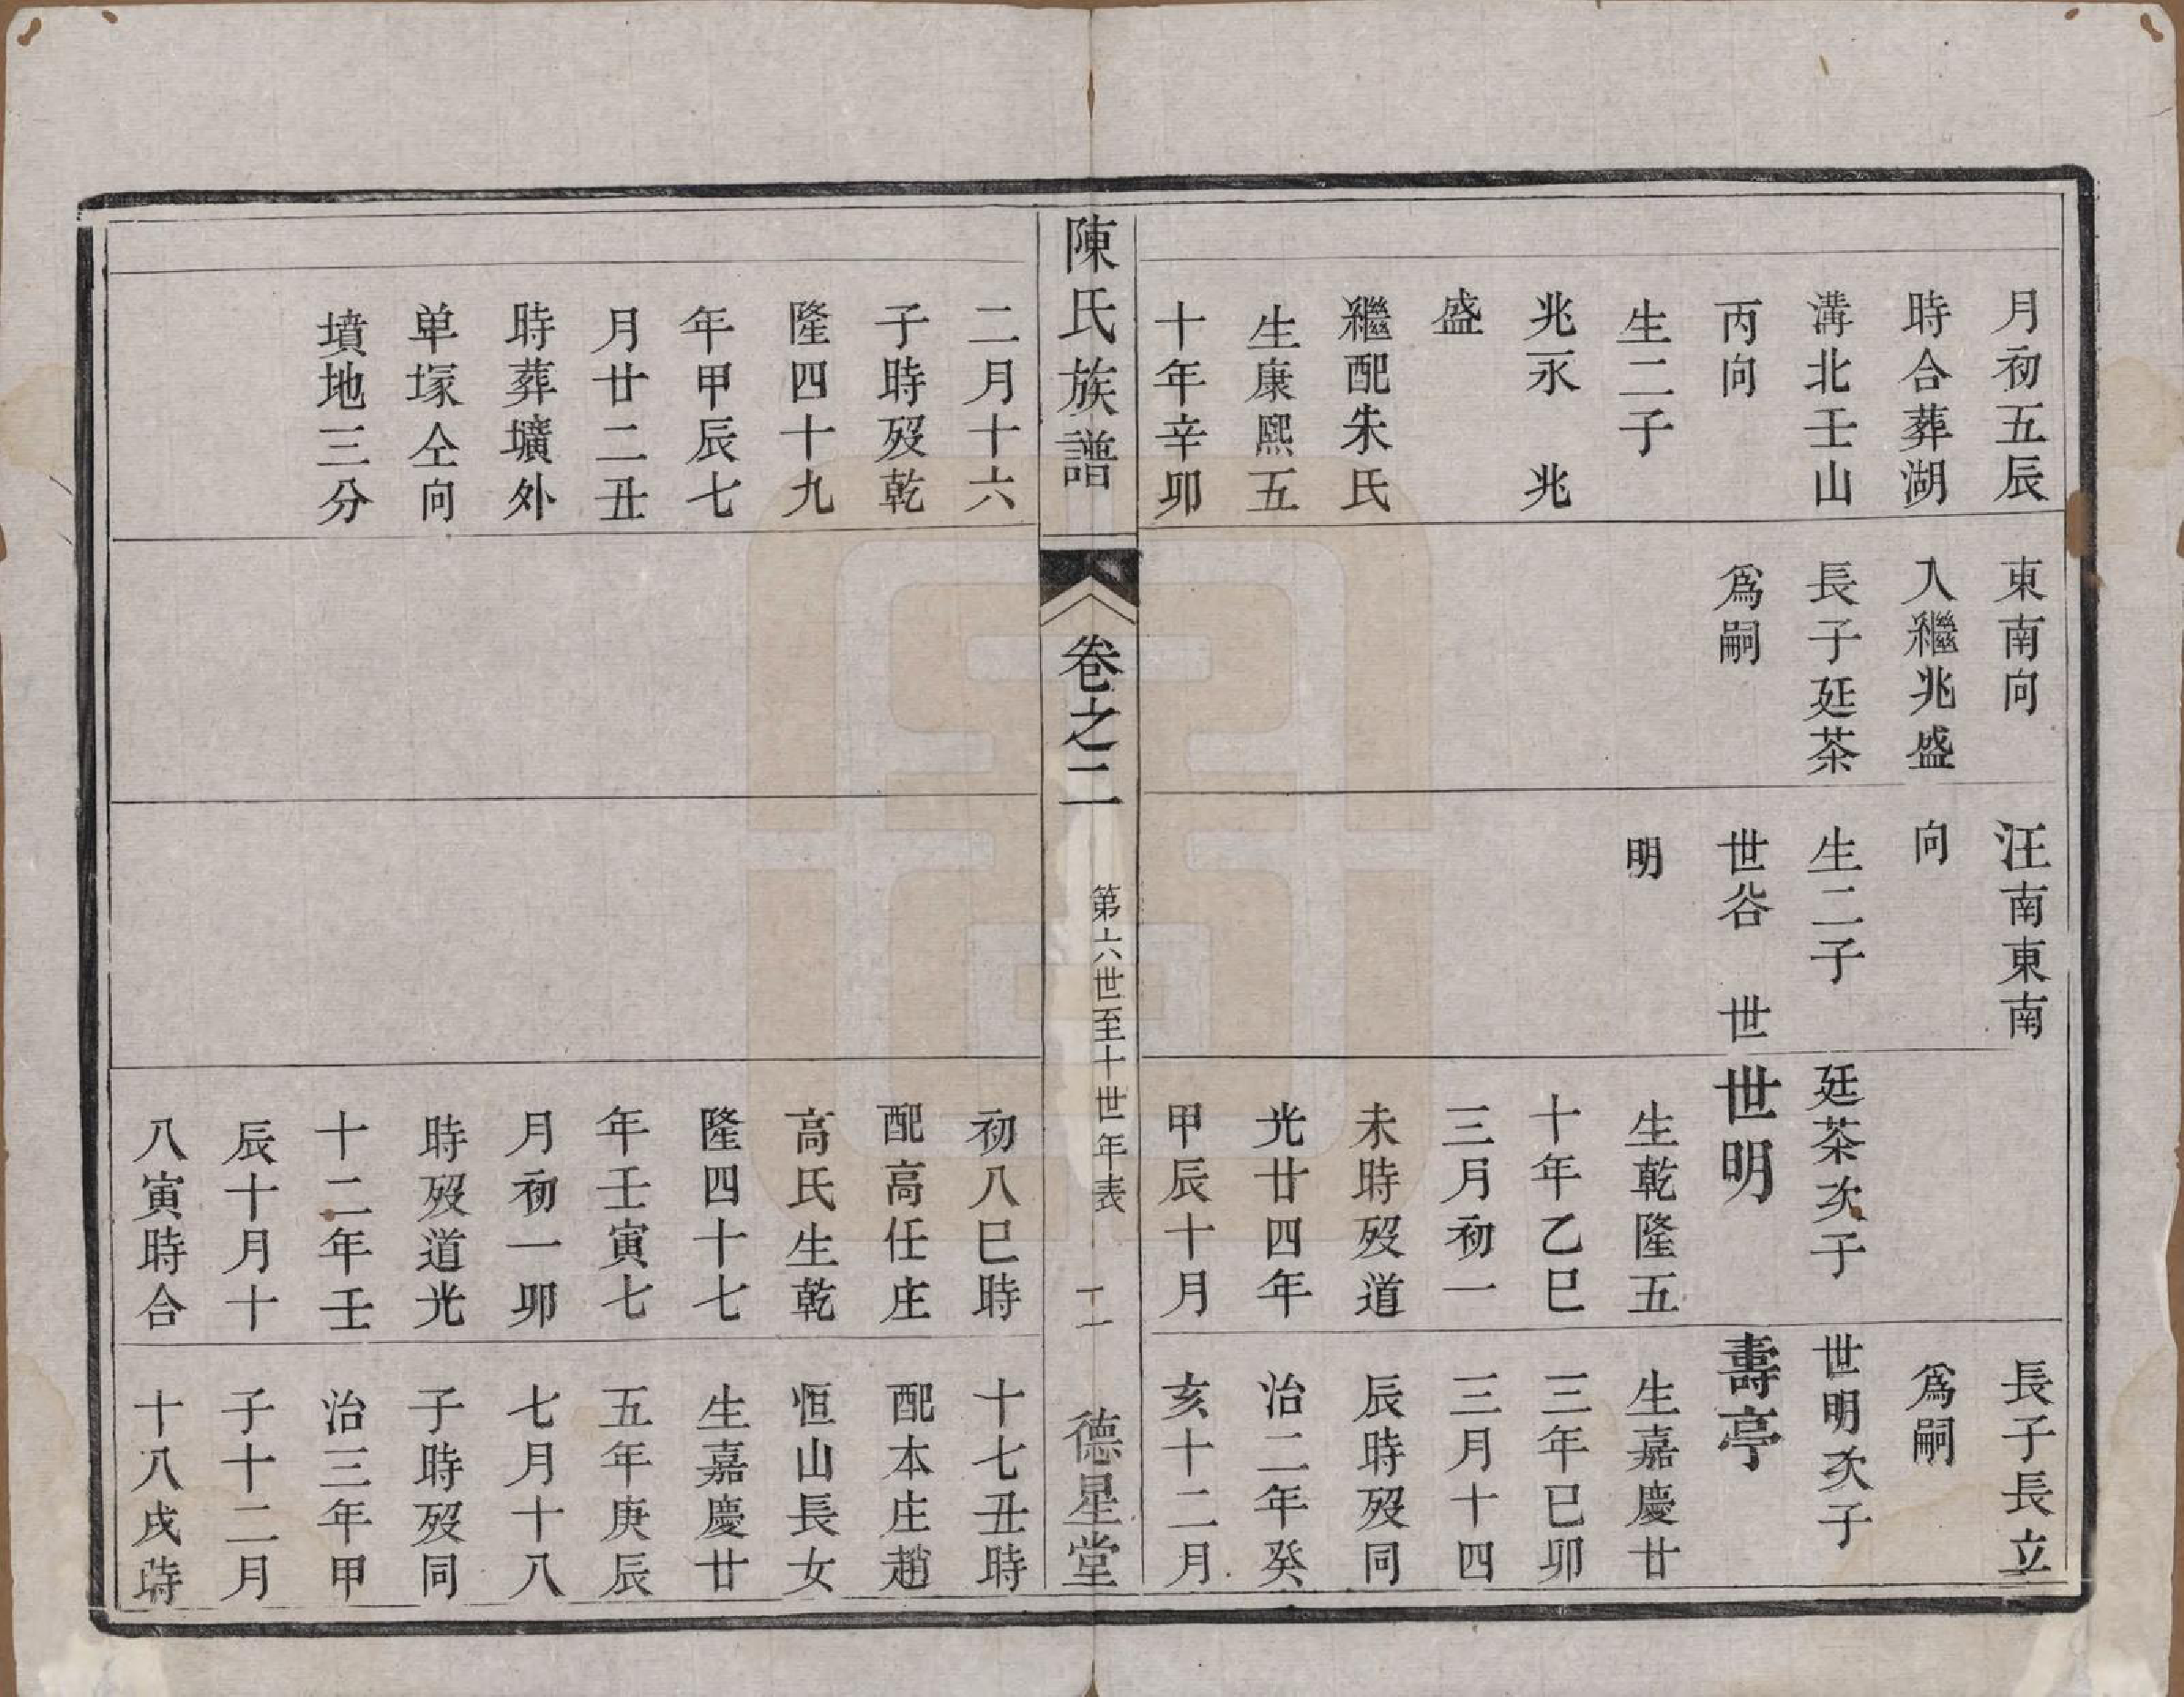 月初五辰
時合葬湖
溝北壬山
丙向
生二子
兆永　兆
盛
繼配朱氏
生康熙五
十年辛卯
東南向
入繼兆盛
長子廷茶
為嗣
汪南東南
向
生二子
世谷　世
明
廷茶次子
世明
生乾隆五
十年乙巳
三月初一
未時歿道
光廿四年
甲辰十月
長子長立
為嗣
世明次子
壽亭
生嘉慶廿
三年己卯
三月十四
辰時歿同
治二年癸
亥十二月
陳氏族譜
卷之二
第六世至十世年表
十一
德星堂
二月十六
子時歿乾
隆四十九
年甲辰七
月廿二丑
時葬壙外
单塚仝向
墳地三分
初八巳時
配高任庄
高氏生乾
隆四十七
年壬寅七
月初一卯
時歿道光
十二年壬
辰十月十
八寅時合
十七丑時
配本庄趙
恒山長女
生嘉慶廿
五年庚辰
七月十八
子時歿同
治三年甲
子十二月
十八戌時